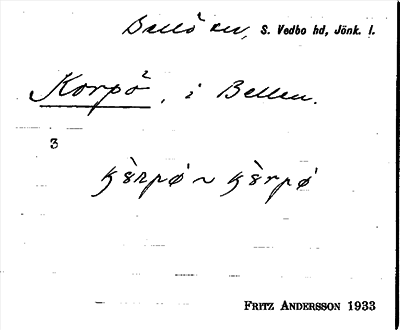 Bellö sn, S. Vedbo hd, Jönk. l.
Korpö², i Bellen.
3
FRITZ ANDERSSON 1933